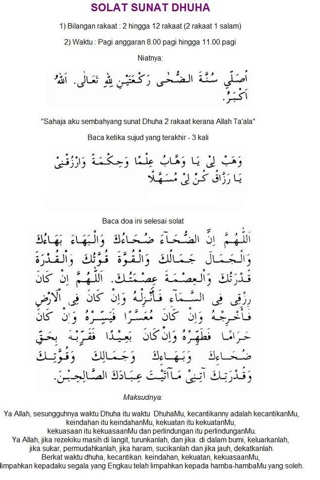 SOLAT SUNAT DHUHA
1) Bilangan rakaat : 2 hingga 12 rakaat (2 rakaat 1 salam)
2) Waktu : Pagi anggaran 8.00 pagi hingga 11.00 pagi
Niatnya:
أُصَلِّي سُنَّةَ الضُّحَى رَكْعَتَيْنِ لِلّٰهِ تَعَالَى. اَللهُ
اَكْبَرُ.
"Sahaja aku sembahyang sunat Dhuha 2 rakaat kerana Allah Ta'ala"
Baca ketika sujud yang terakhir - 3 kali
وَهَبْ لِيْ يَا وَهَّابُ عِلْمًا وَحِكْمَةً وَارْزُقْنِيْ
يَا رَزَّاقُ كُنْ لِيْ مُسَهِّلًا
Baca doa ini selesai solat
اَللّٰهُمَّ اِنَّ الضُّحَآءَ ضُحَاءُكَ وَالْبَهَاءَ بَهَاءُكَ
وَالْجَمَالَ جَمَالُكَ وَالْقُوَّةَ قُوَّتُكَ وَالْقُدْرَةَ
قُدْرَتُكَ وَالْعِصْمَةَ عِصْمَتُكَ. اَللّٰهُمَّ اِنْ كَانَ
رِزْقِى فِى السَّمَآءِ فَأَنْزِلْهُ وَاِنْ كَانَ فِى اْلاَرْضِ
فَأَخْرِجْهُ وَاِنْ كَانَ مُعَسَّرًا فَيَسِّرْهُ وَاِنْ كَانَ
حَرَامًا فَطَهِّرْهُ وَاِنْ كَانَ بَعِيْدًا فَقَرِّبْهُ بِحَقِّ
ضُحَاءِكَ وَبَهَاءِكَ وَجَمَالِكَ وَقُوَّتِكَ
وَقُدْرَتِكَ آتِنِىْ مَآاَتَيْتَ عِبَادَكَ الصَّالِحِيْنَ.
Maksudnya:
Ya Allah, sesungguhnya waktu Dhuha itu waktu DhuhaMu, kecantikanny adalah kecantikanMu,
keindahan itu keindahanMu, kekuatan itu kekuatanMu,
kekuasaan itu kekuasaanMu dan perlindungan itu perlindunganMu.
Ya Allah, jika rezekiku masih di langit, turunkanlah, dan jika di dalam bumi, keluarkanlah,
jika sukar, permudahkanlah, jika haram, sucikanlah dan jika jauh, dekatkanlah.
Berkat waktu dhuha, kecantikan, keindahan, kekuatan, kekuasaanMu,
limpahkan kepadaku segala yang Engkau telah limpahkan kepada hamba-hambaMu yang soleh.